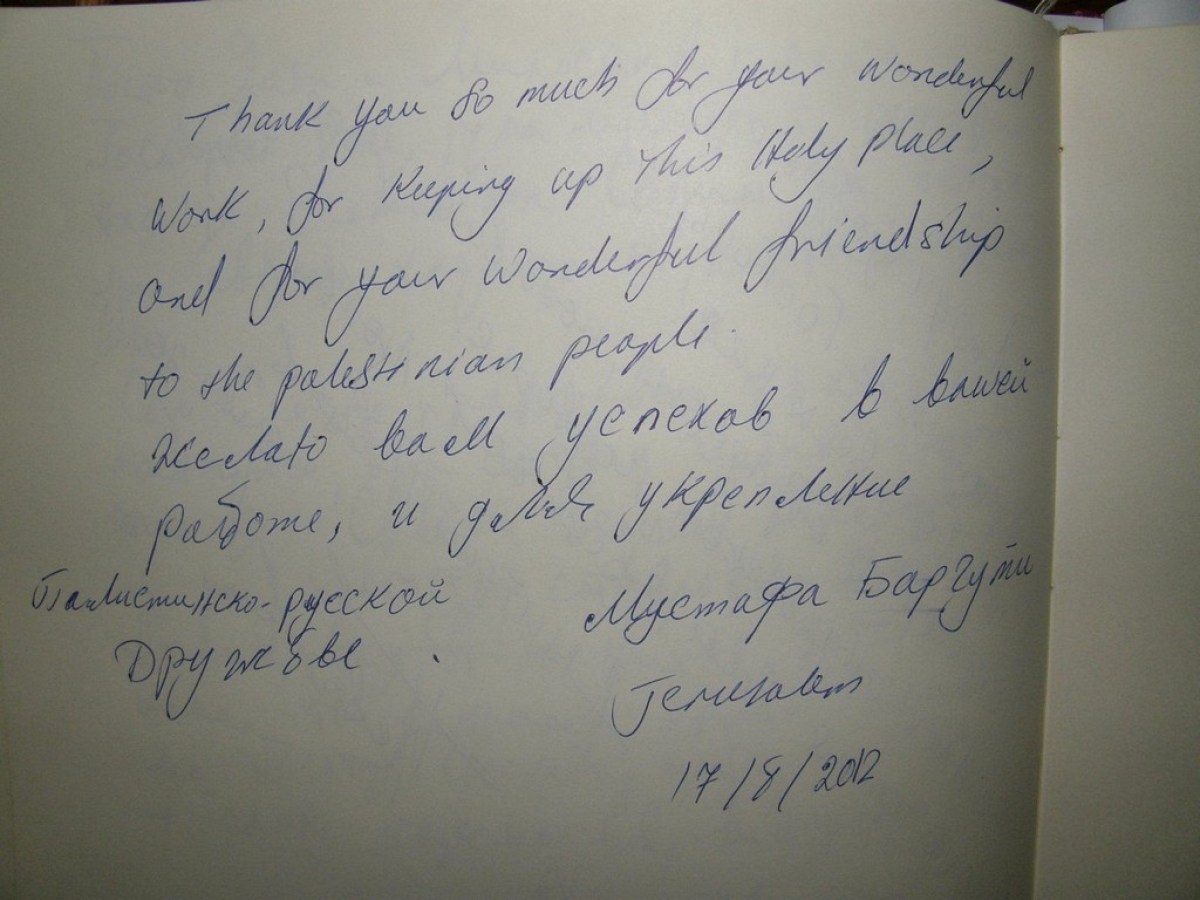 Thank you so much for your wonderful
work, for keeping up this Holy place,
and for your wonderful friendship
to the palestinian people.
Желаю вам успехов в вашей
работе, и для укрепление
Палистинско-русской
Дружбы.
Мустафа Баргути
Jerusalem
17/8/2012